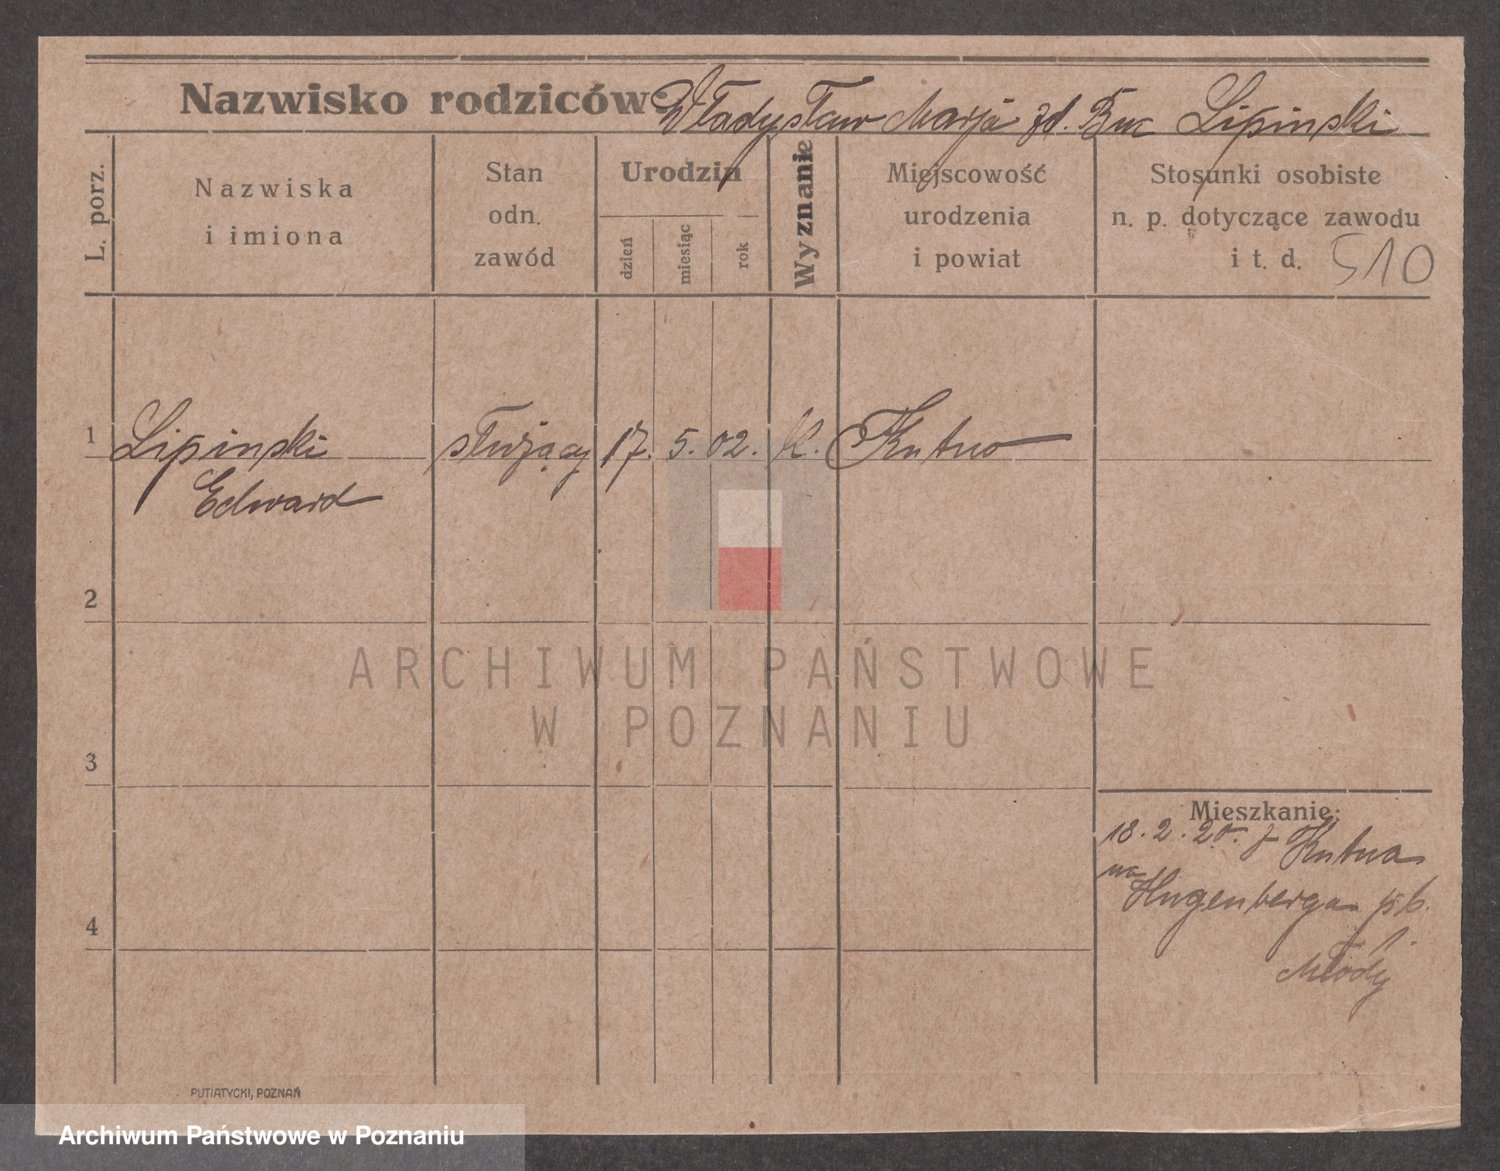 Nazwisko rodziców Władysław Marja zd. Buc Lipinski
L. porz.
Nazwiska
i imiona
Stan
odn.
zawód
Urodzin
dzień
miesiąc
rok
Wyznanie
Miejscowość
urodzenia
i powiat
Stosunki osobiste
n. p. dotyczące zawodu
i t. d. 510
1 Lipinski służący 17. 5. 02. k. Kutno
Edward
2
ARCHIWUM PAŃSTWOWE
W POZNANIU
3
Mieszkanie:
18. 2. 20. z Kutna
na
Hugenberga
4
Młody
PUTIATYCKI, POZNAŃ
Archiwum Państwowe w Poznaniu